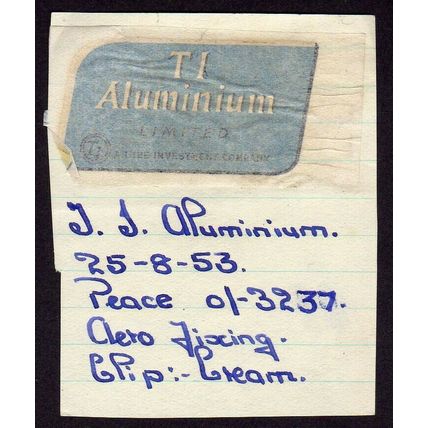 TI
Aluminium
LIMITED
TI A TUBE INVESTMENTS COMPANY
T. I. Aluminium.
25-8-53.
Peace of-3237.
Aero Fixing.
Clip:- Cream.